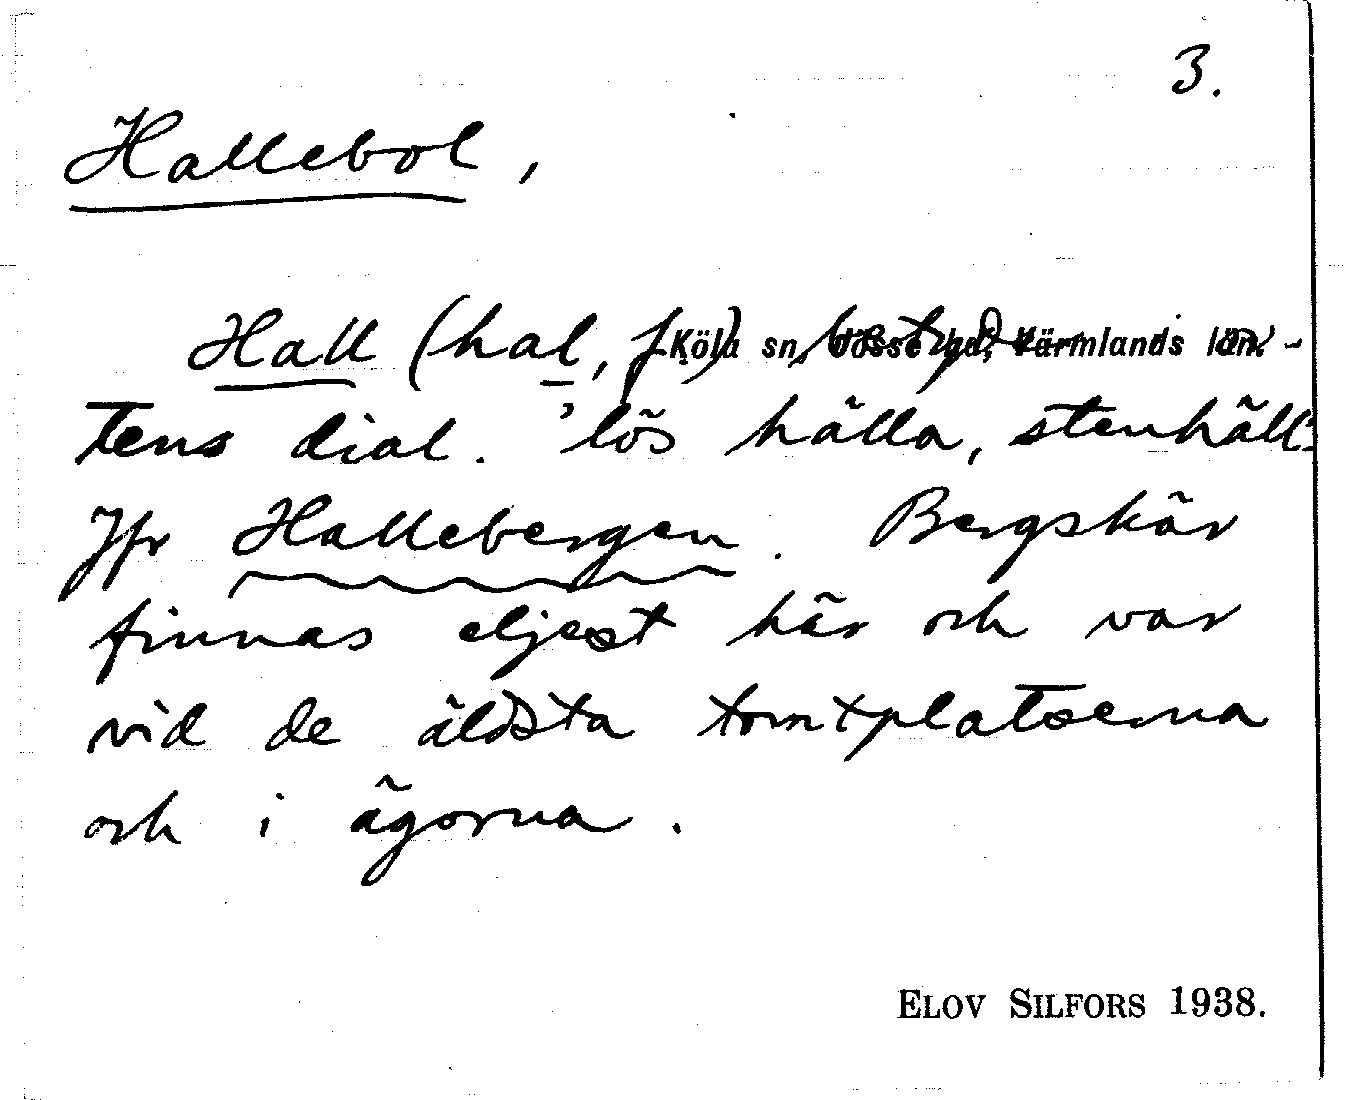 3.
Hallebol,
Hall (hal, f.) betyder i or-
Köla sn, Jösse hd, Värmlands län.
tens dial. 'lös hälla, stenhäll'.
Jfr Hallebergen. Bergskär
finnas eljest här och var
vid de äldsta tomtplatserna
och i ägorna.
ELOV SILFORS 1938.